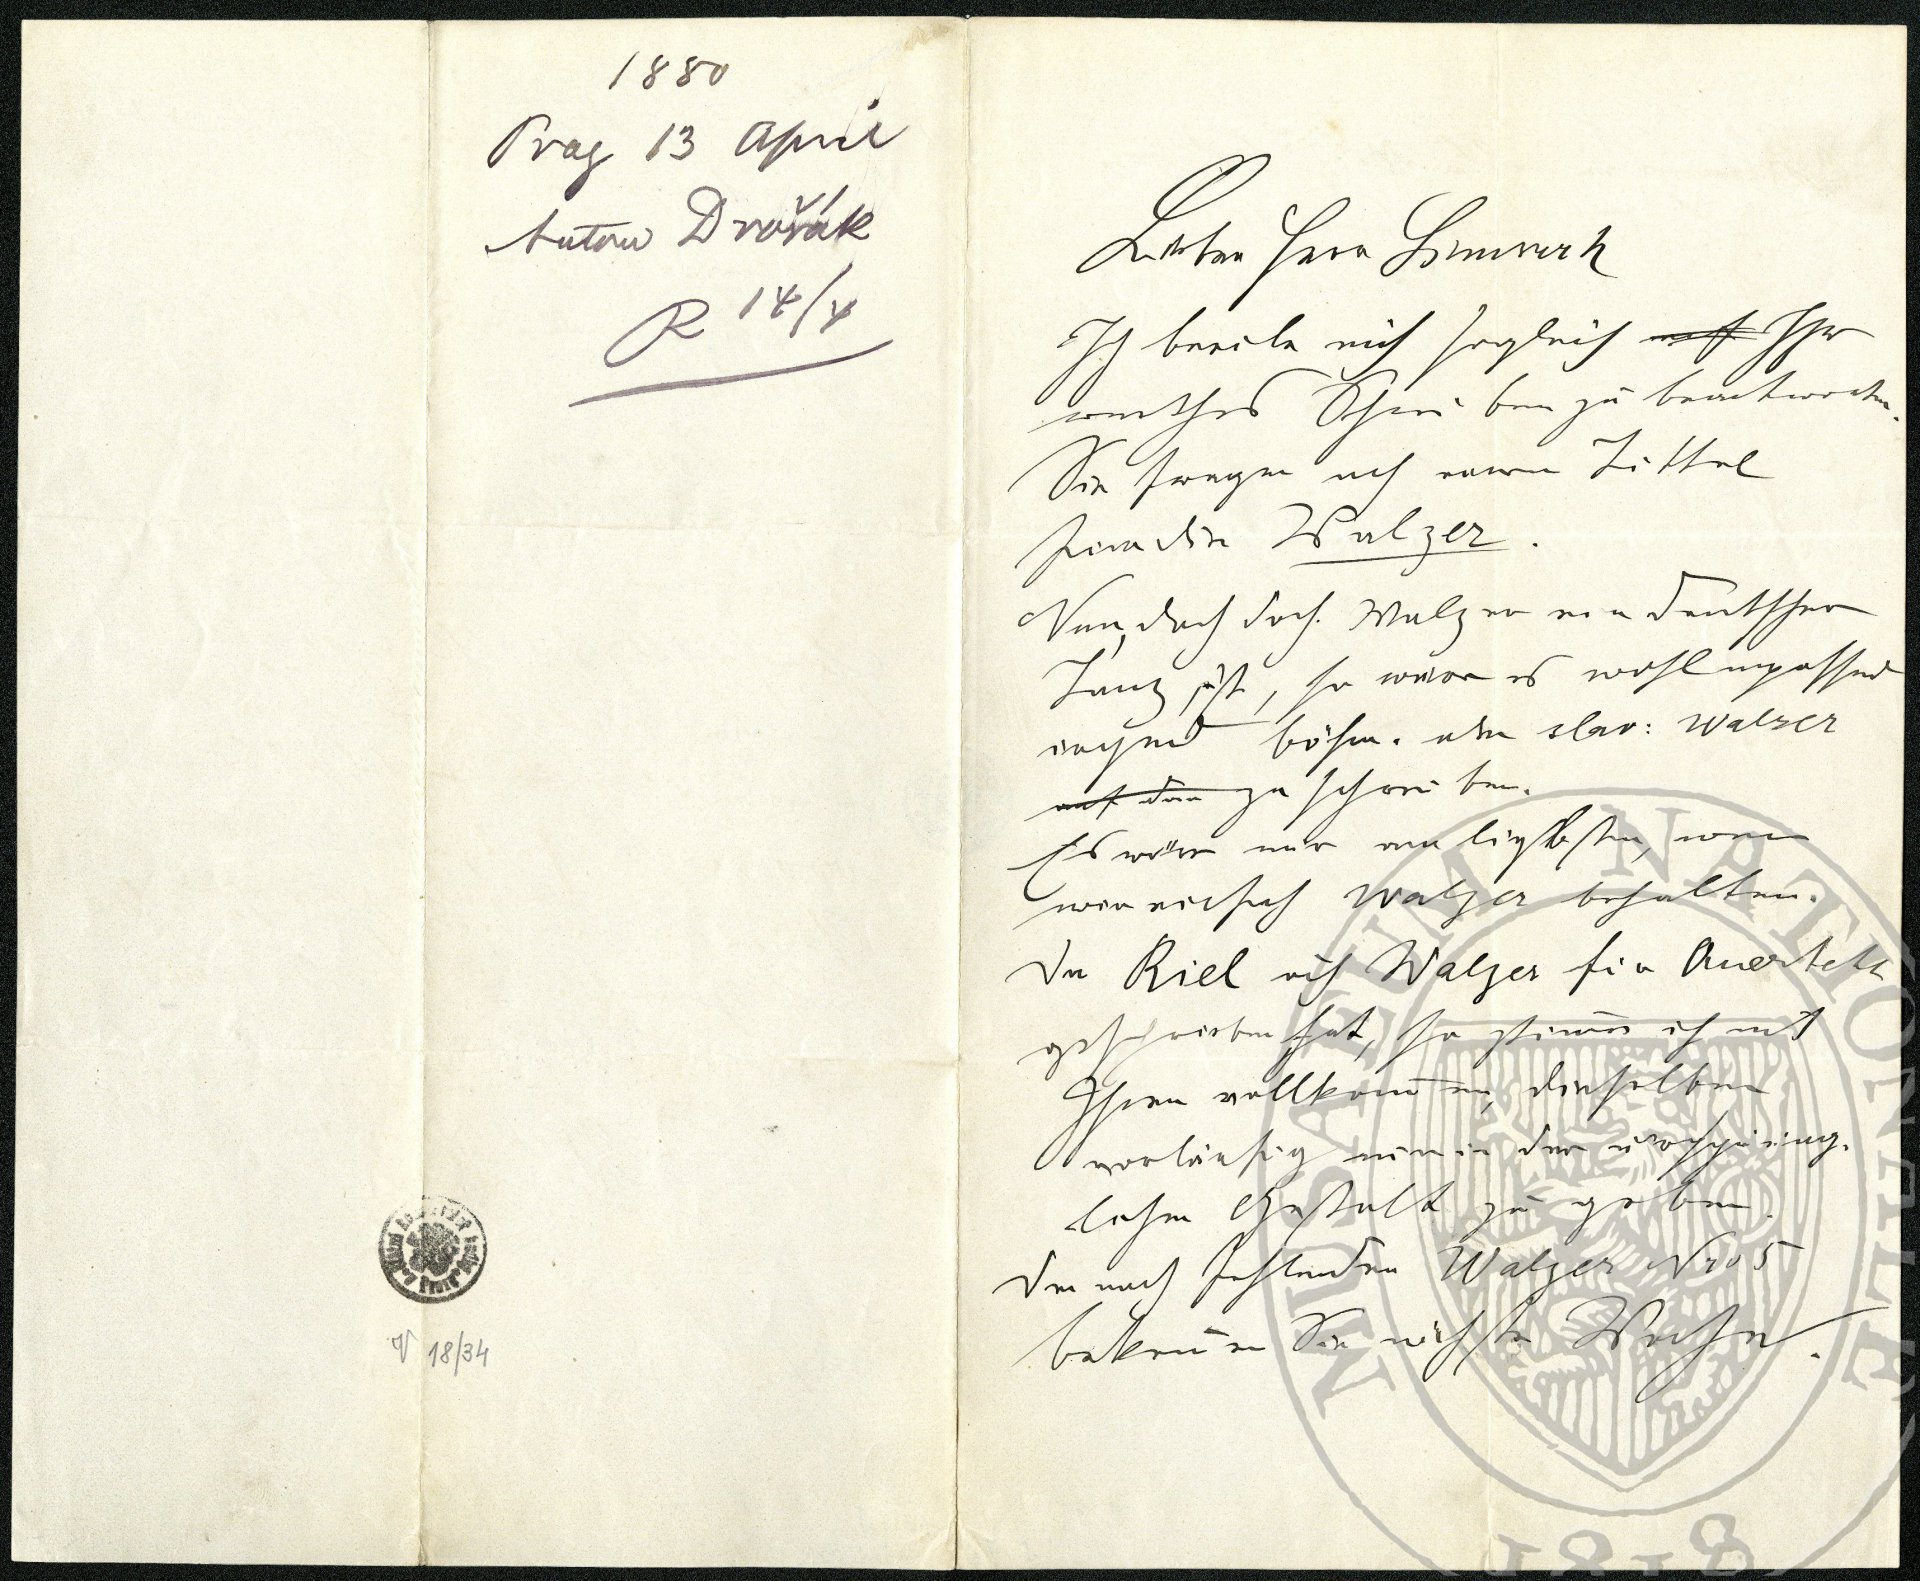 1880
Prag 13 April
Anton Dvořák
R 14/4
V 18/34
Lieber Herr Simrock
Ich beeile mich sogleich auf Ihr
werthes Schreiben zu beantworten.
Sie fragen nach einem Tittel
für die Walzer.
Nun, doch doch. Walzer ein deutscher
Tanz ist, so wäre es wohl unpassend
irgend böhm. oder slav: Walzer
auf den zu schreiben.
Es wäre mir am liebsten, wenn
wir einfach Walzer behalten.
Da Kiel auch Walzer für Quartett
geschrieben hat, so stimme ich mit
Ihnen vollkommen, dieselben
vorläufig nur in der ursprüng-
lichen Gestalt zu geben.
Den noch fehlenden Walzer Nro 5
bekommen Sie nächste Woche.
MUSAEUM NATIONALE
1818